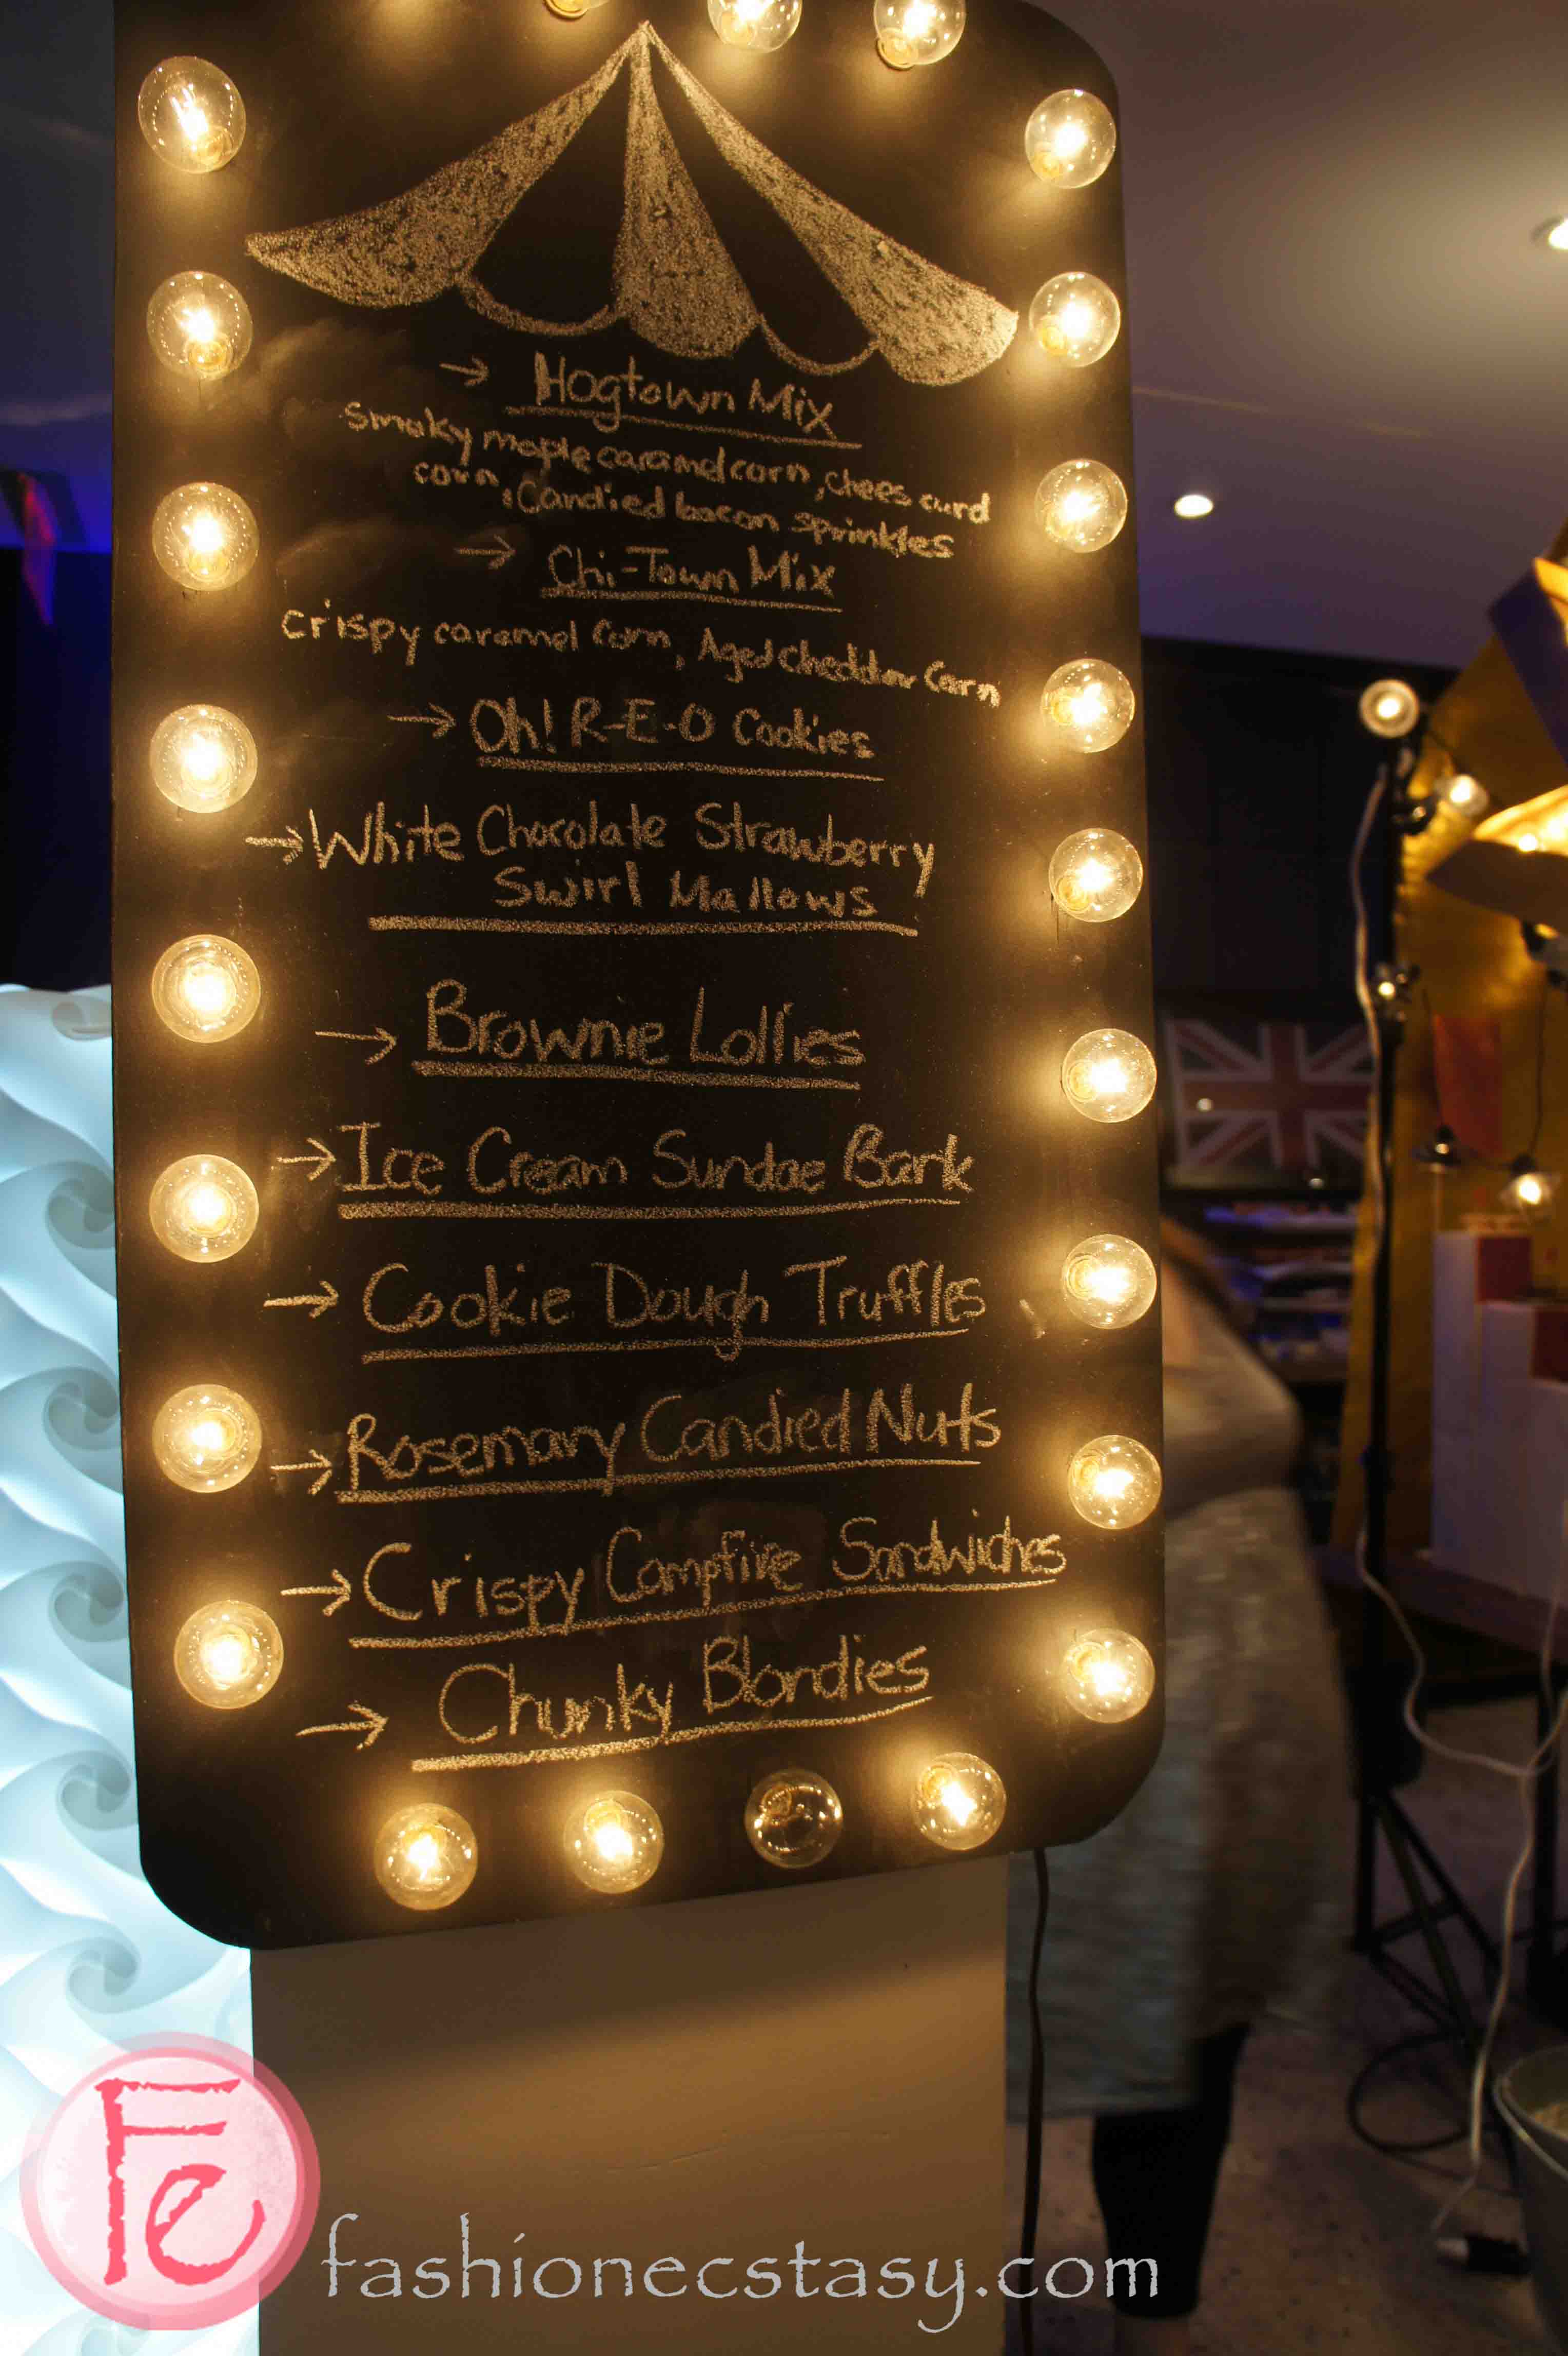 → Hogtown Mix
Smoky maple caramel corn, chees curd
corn, Candied bacon sprinkles
→ Chi-Town Mix
Crispy caramel Corn, Aged cheddar Corn
→ Oh! R-E-O Cookies
→ White Chocolate Strawberry
Swirl Mallows
→ Brownie Lollies
→ Ice Cream Sundae Bark
→ Cookie Dough Truffles
→ Rosemary Candied Nuts
→ Crispy Campfire Sandwiches
→ Chunky Blondies
Fe
fashionecstasy.com